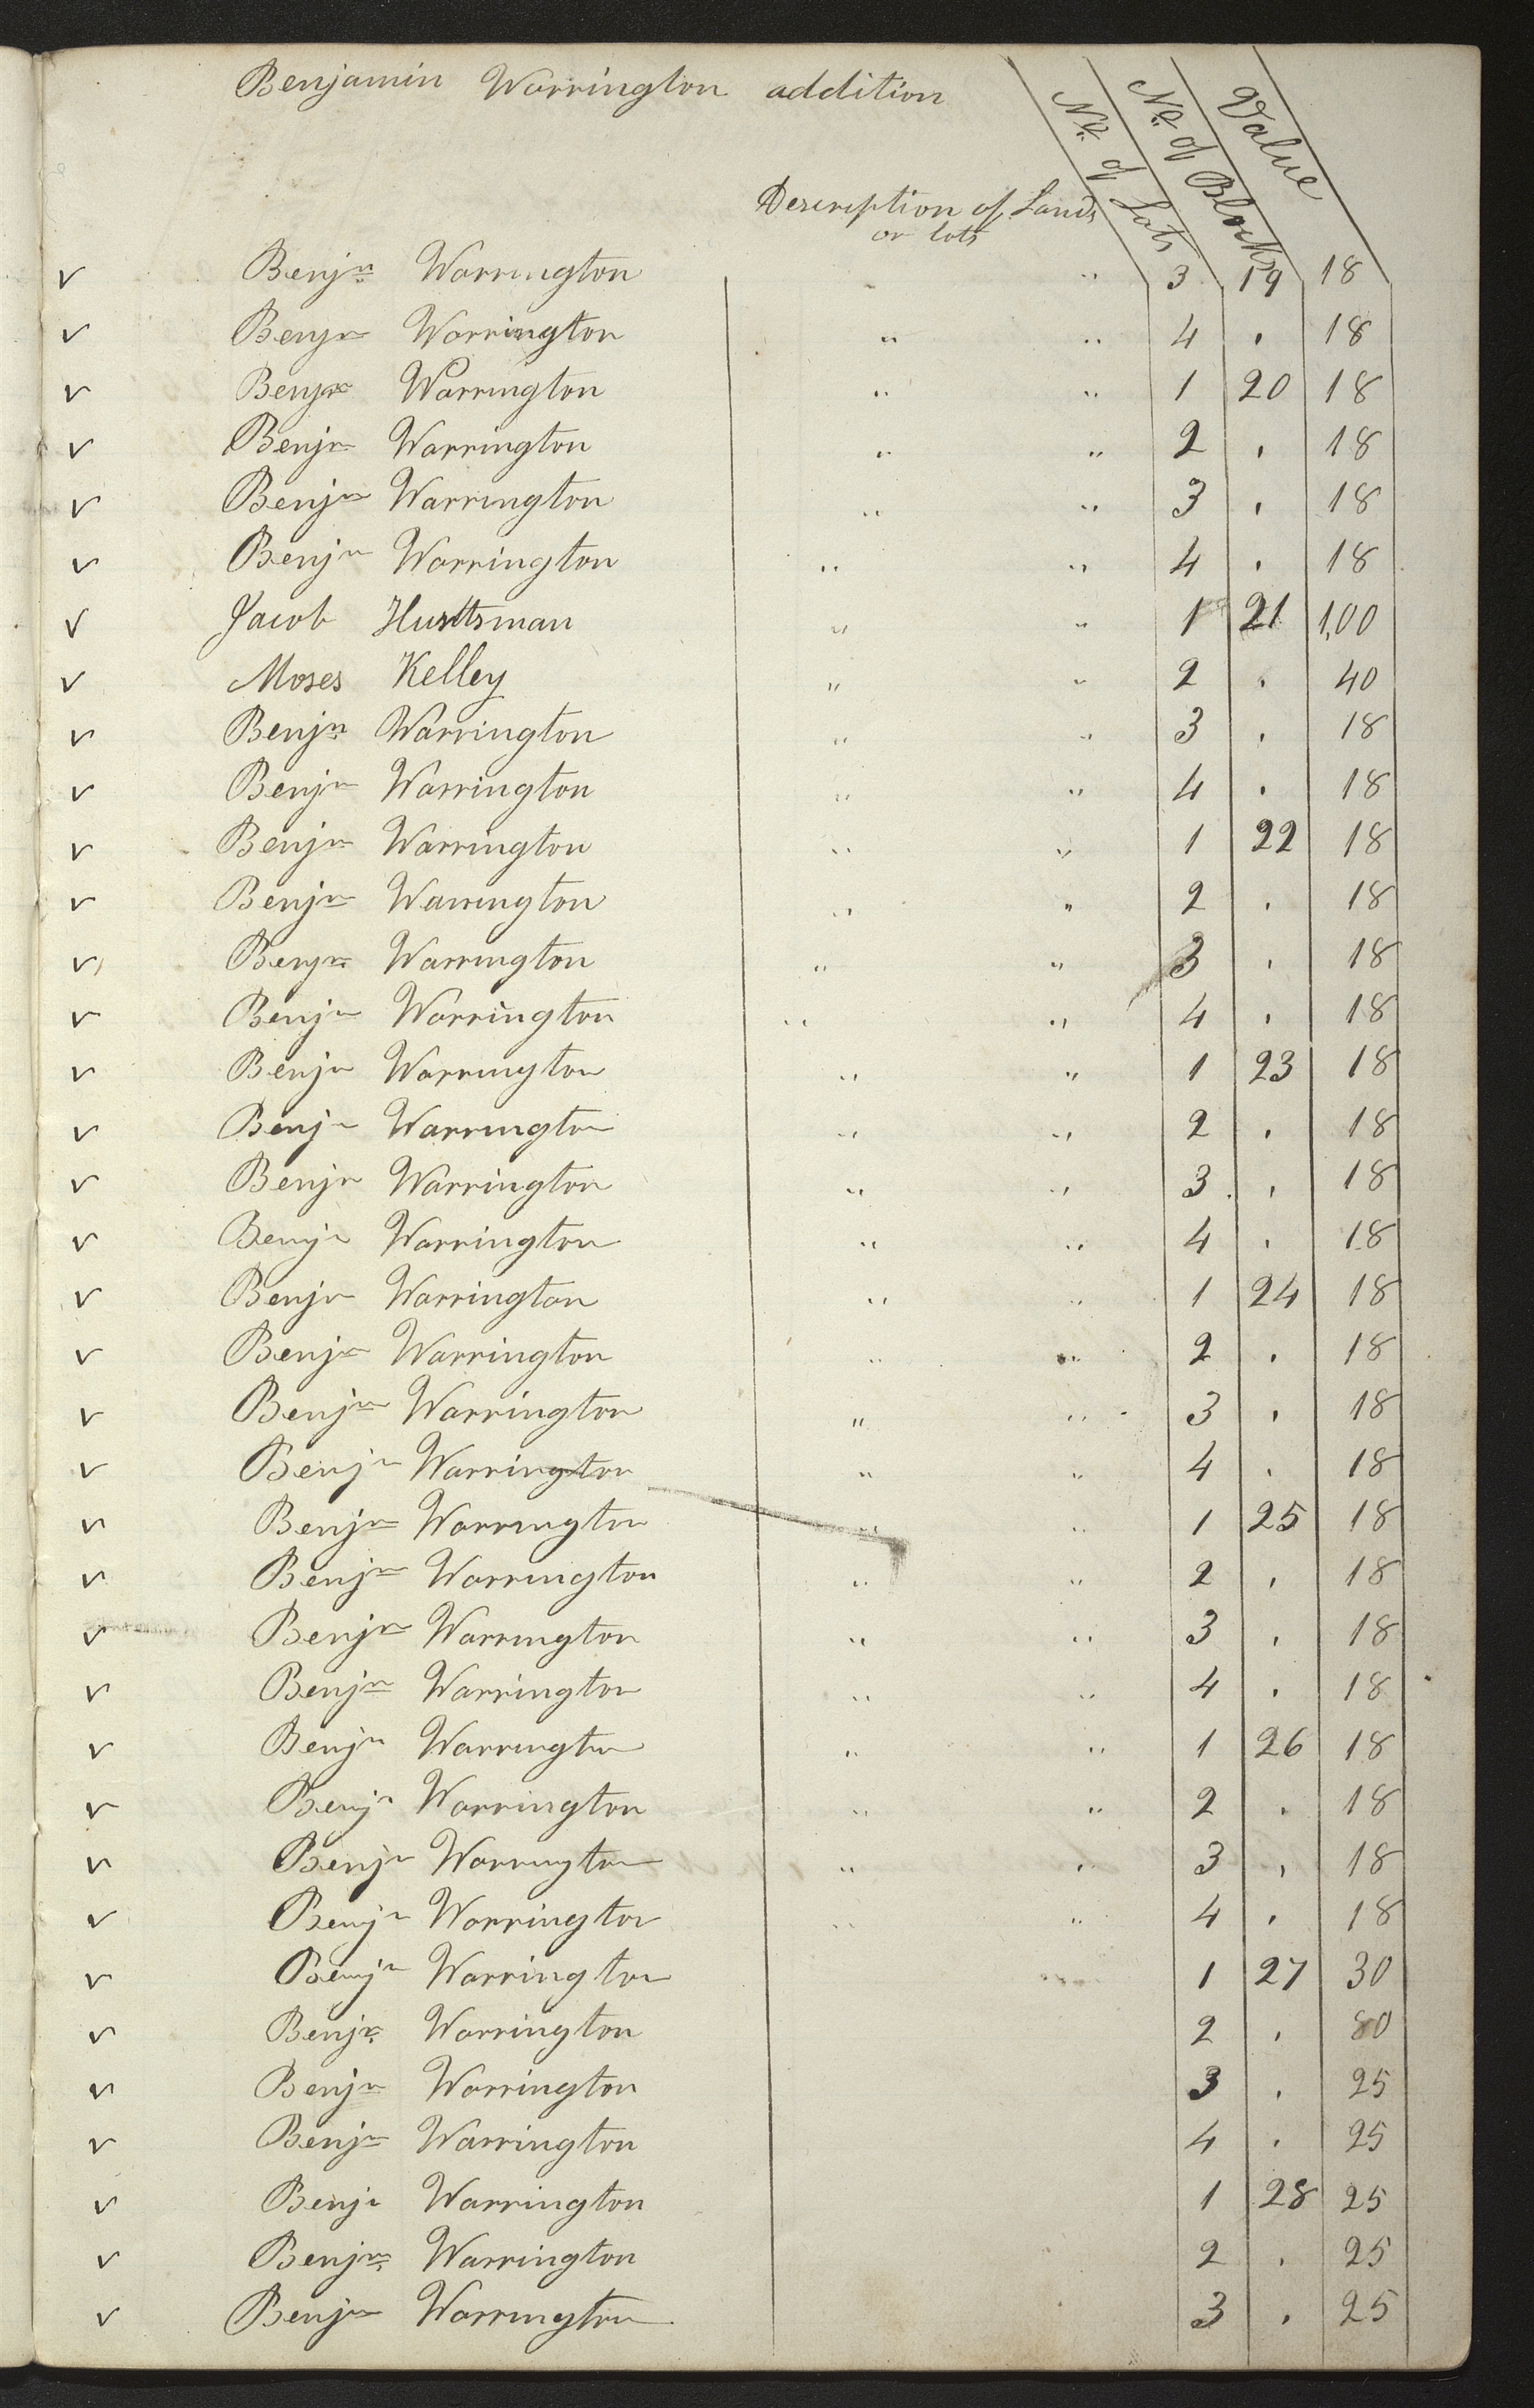 Benjamin Warrington addition
No. of Lots
No. of Blocks
Value
Description of Lands
or lots
v Benjn Warrington " 3 19 18
v Benjn Warrington " " 4 . 18
v Benjn Warrington " " 1 20 18
v Benjn Warrington " " 2 . 18
v Benjn Warrington " " 3 . 18
v Benjn Warrington " " 4 . 18
v Jacob " " 1 21 1,00
v Moses Kelley " " 2 . 40
v Benjn Warrington " " 3 . 18
v Benjn Warrington " " 4 . 18
v Benjn Warrington " " 1 22 18
v Benjn Warrington " " 2 . 18
v Benjn Warrington " " 3 . 18
v Benjn Warrington " " 4 . 18
v Benjn Warrington " " 1 23 18
v Benjn Warrington " " 2 . 18
v Benjn Warrington " " 3 . 18
v Benjn Warrington " " 4 . 18
v Benjn Warrington " " 1 24 18
v Benjn Warrington " " 2 . 18
v Benjn Warrington " " 3 . 18
v Benjn Warrington " " 4 . 18
v Benjn Warrington " " 1 25 18
v Benjn Warrington " " 2 . 18
v Benjn Warrington " " 3 . 18
v Benjn Warrington " " 4 . 18
v Benjn Warrington " " 1 26 18
v Benjn Warrington " " 2 . 18
v Benjn Warrington " " 3 . 18
v Benjn Warrington " " 4 . 18
v Benjn Warrington 1 27 30
v Benjn Warrington 2 . 80
v Benjn Warrington 3 . 25
v Benjn Warrington 4 . 25
v Benjn Warrington 1 28 25
v Benjn Warrington 2 . 25
v Benjn Warrington 3 . 25